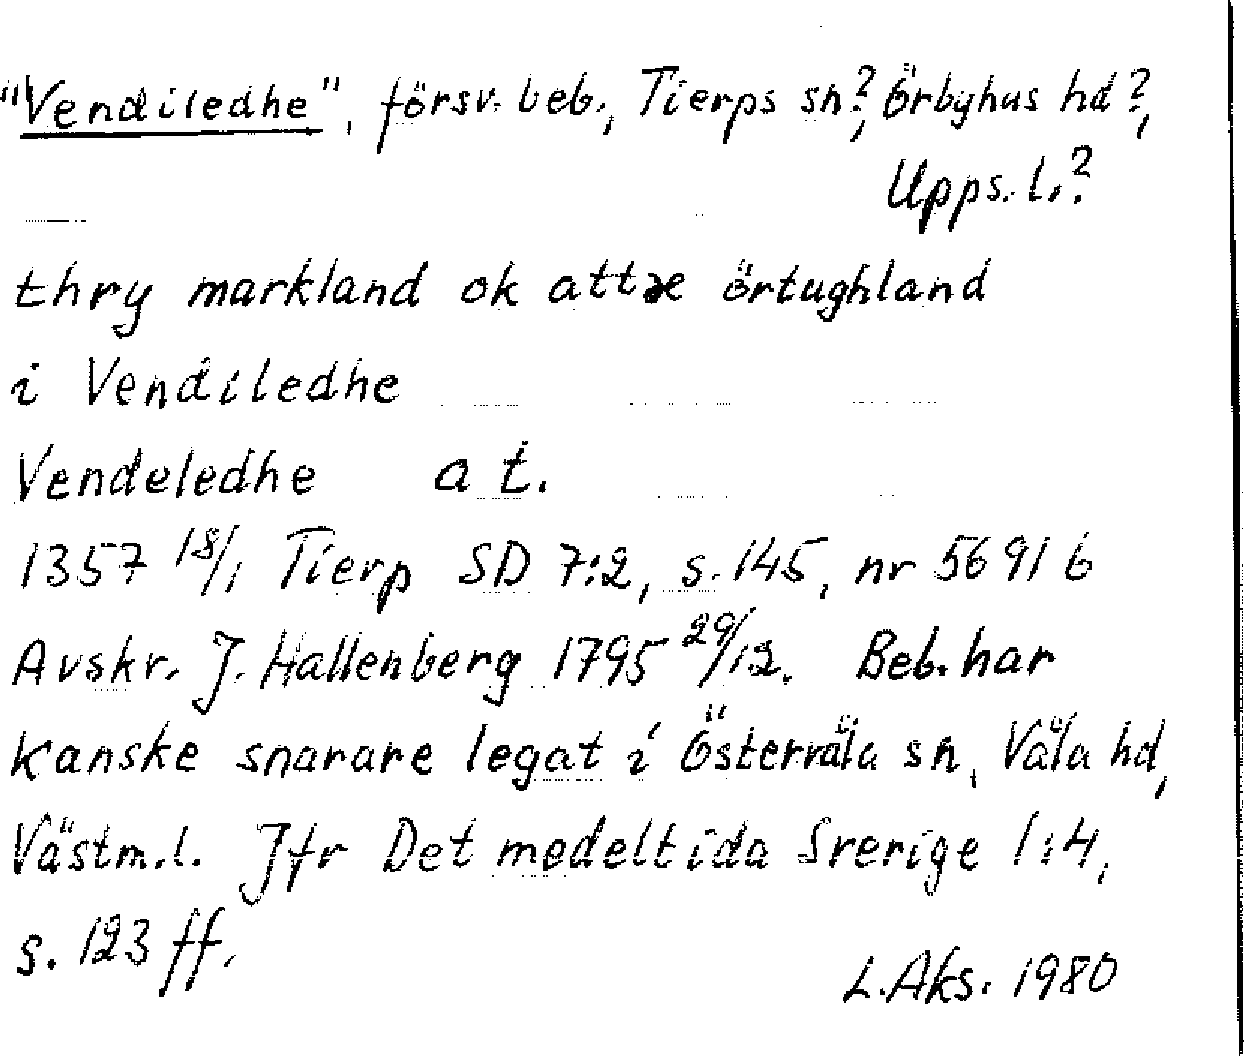 "Vendiledhe", försv. beb., Tierps sn?, Örbyhus hd?,
Upps. l.?
thry markland ok attæ örtughland
i Vendiledhe
Vendeledhe a t.
1357 18/1 Tierp SD 7:2, s. 145, nr 5691 b
Avskr. J. Hallenberg 1795 29/12. Beb. har
kanske snarare legat i Östervåla sn, Våla hd,
Västm. l. Jfr Det medeltida Sverige 1:4,
s. 123 ff.
L. Aks. 1980